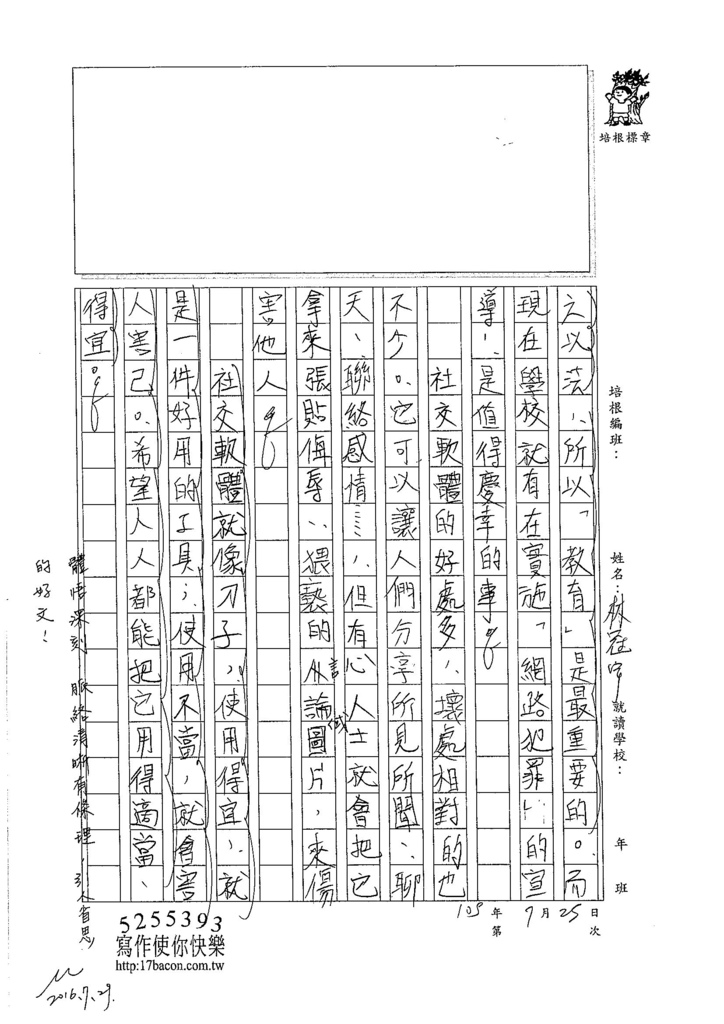 培根標章
培根編班：
姓名：林冠宇
就讀學校：
年 班
105年7月25日
第 次
之以法，所以「教育」是最重要的。而
現在學校就有在實施「網路犯罪」的宣
導，是值得慶幸的事。
社交軟體的好處多，壞處相對的也
不少。它可以讓人們分享所見所聞、聊
天、聯絡感情……，但有心人士就會把它
拿來張貼侮辱、猥褻的言論或圖片，來傷
害他人。
社交軟體就像刀子，使用得宜，就
是一件好用的工具；使用不當，就會害
人害己。希望人人都能把它用得適當、
得宜。
體悟深刻，脈絡清晰有條理，引人省思
的好文！
5255393
寫作使你快樂
http:17bacon.com.tw
2016.7.29.